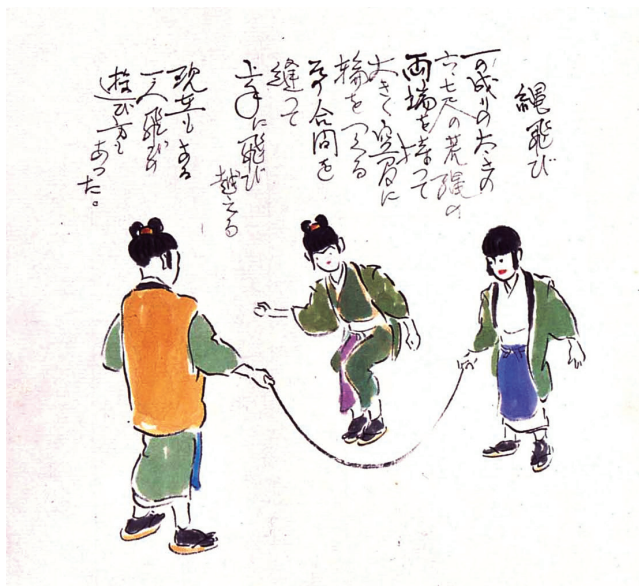 縄飛び
可成りの太さの
六、七尺の荒縄の
両端を持って
大きく空間に
輪をつくる
その合間を
縫って
上手に飛び
越える
現在もある
一人飛びの
遊び方も
あった。